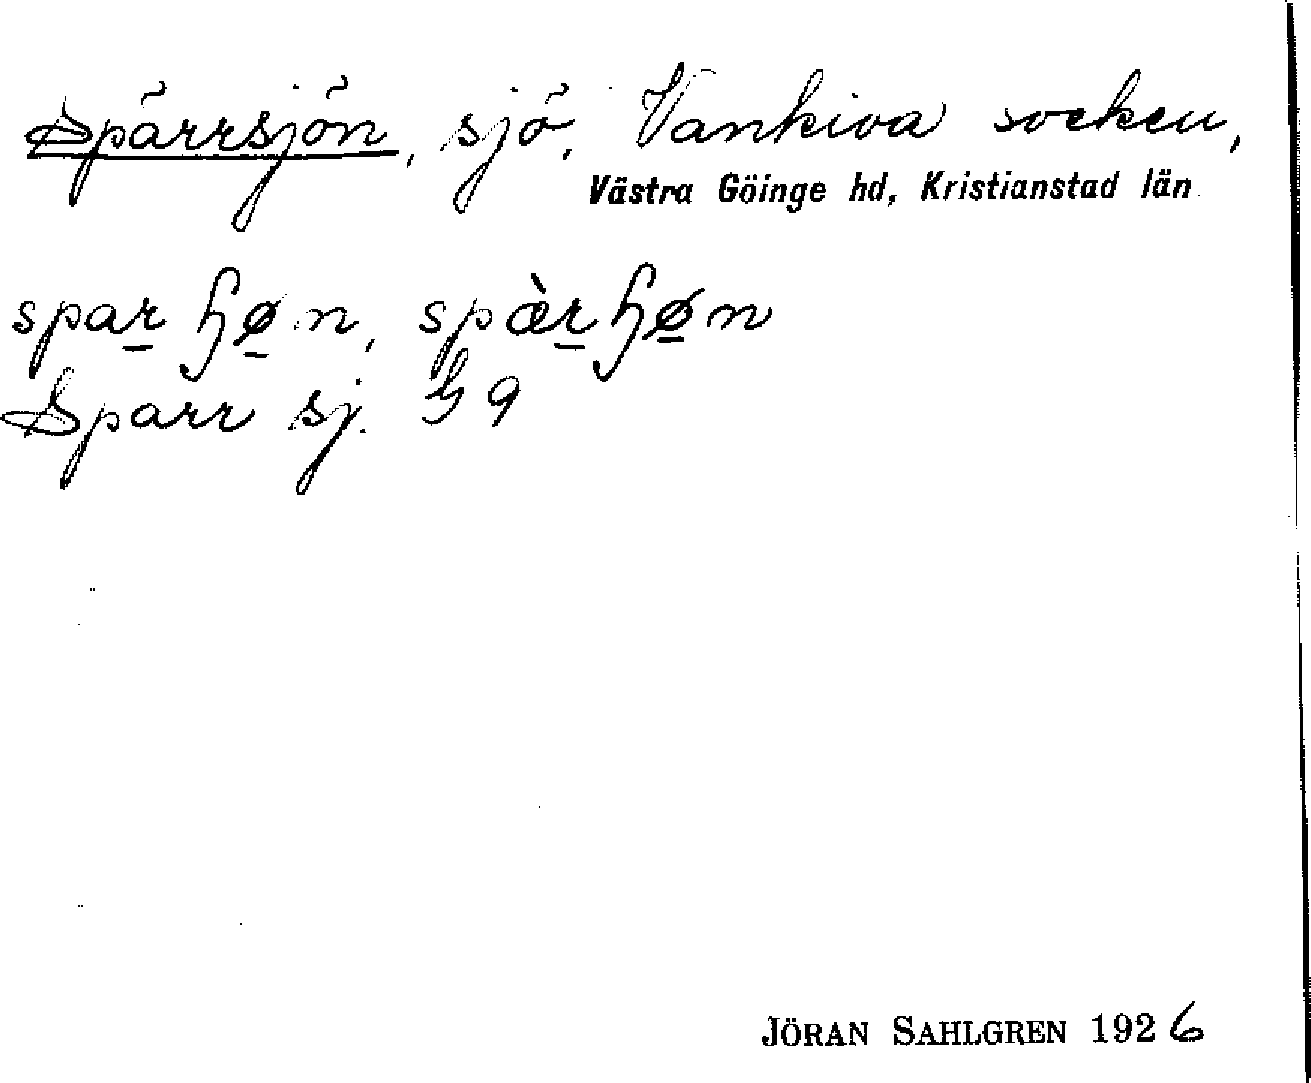 Spärrsjön, sjö, Vankiva socken,
Västra Göinge hd, Kristianstad län
sparɧøn, spæ̀rɧøn
Sparr sj. G 9
JÖRAN SAHLGREN 1926